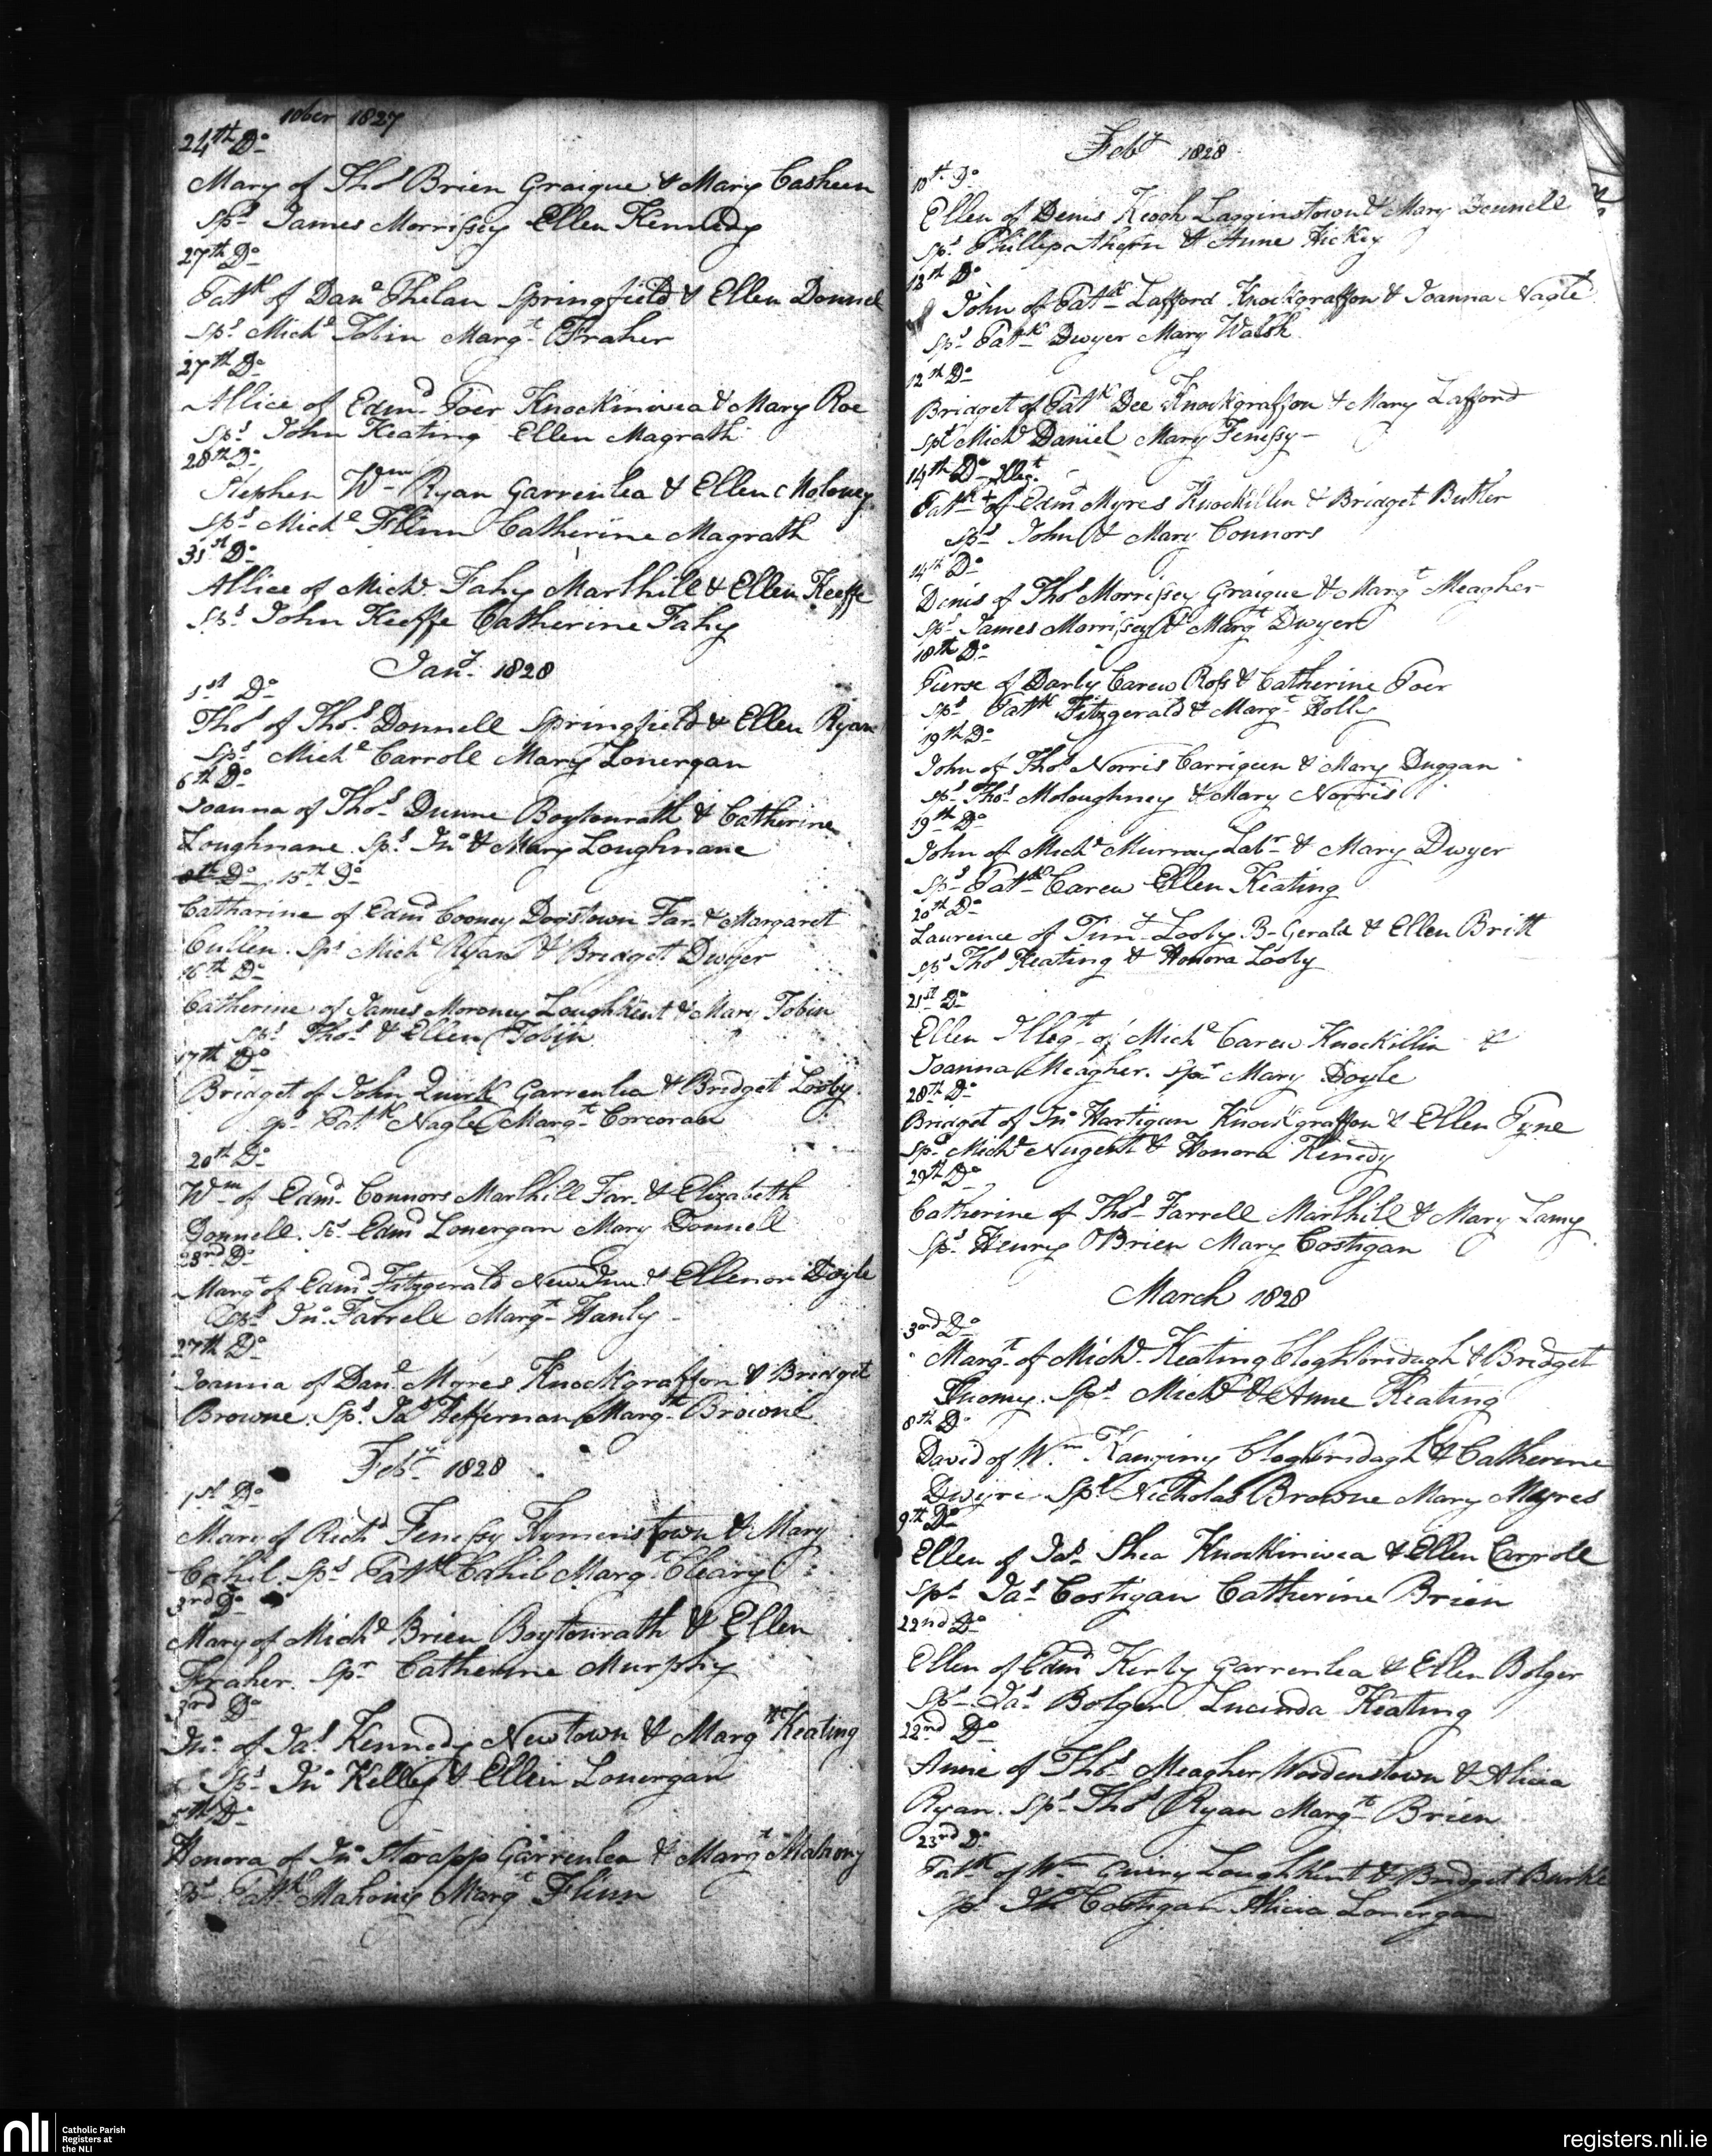 10ber 1827
24th Do
Mary of Thos Brien Graigue & Mary Casheen
Sps James Morrissey Ellen Kennedy
27th Do
Patk of Danl Phelan Springfield & Ellen Donnel
Sps Michl Tobin Margt Fraher
27th Do
Allice of Edmd Poer Knockinivea & Mary Roe
Sps John Keating Ellen Magrath
28th Do
Stephen Wm Ryan Garrenlea & Ellen Moloney
Sps Michl Flinn Catherine Magrath
31st Do
Allice of Michl Fahy Marlhill & Ellen Keeffe
Sps John Keeffe Catherine Fahy
Jany 1828
1st Do
Thos of Thos Donnell Springfield & Ellen Ryan
Sps Michl Carroll Mary Lonergan
6th Do
Joanna of Thos Dunne Boytonrath & Catherine
Loughnane Sps Jno & Mary Loughnane
8th Do 15th Do
Catharine of Edmd Cooney Dogstown Far. & Margaret
Cullen. Sps Michl Ryan & Bridget Dwyer
16th Do
Catherine of James Moroney Loughkent & Mary Tobin
Sps Thos & Ellen Tobin
17th Do
Bridget of John Quirk Garrenlea & Bridget Looby.
Sps Patk Nagle Margt Corcoran
20th Do
Wm of Edmd Connors Marlhill Far. & Elizabeth
Donnell. Ss Edmd Lonergan Mary Donnell
23rd Do
Margt of Edmd Fitzgerald New Inn & Ellenor Doyle
Sps Jno Farrell Margt Hanly
27th Do
Joanna of Danl Myres Knockgraffon & Bridget
Browne. Sps Jas Heffernan Margt Browne.
Feby 1828
1st Do
Mary of Richd Fenessy Hymenstown & Mary
Cahil. Sps Patk Cahil Margt Cleary
3rd Do
Mary of Michl Brien Boytonrath & Ellen
Fraher. Spr Catherine Murphy
3rd Do
Jno of Jas Kennedy Newtown & Margt Keating
Sps Jno Kelley & Ellen Lonergan
5th Do
Honora of Jno Strapp Garrenlea & Margt Mahony
Sps Patk Mahony Margt Flinn
Feby 1828
10th Do
Ellen of Denis Keogh Lagginstown & Mary Donnell
Sps Phillip Ahern & Anne Hickey
13th Do
John of Patk Lafford Knockgraffon & Joanna Nagle
Sps Patk Dwyer Mary Walsh
12th Do
Bridget of Patk Dee Knockgraffon & Mary Lafford
Sps Michl Daniel Mary Fenessy
14th Do Illegt
Patk of Edmd Myres Knockillen & Bridget Butler
Sps John & Mary Connors
14th Do
Denis of Thos Morrissey Graigue & Margt Meagher
Sps James Morrissey & Margt Dwyer
18th Do
Pierse of Darby Carew Ross & Catherine Poer
Sps Patk Fitzgerald & Margt Holly
19th Do
John of Thos Norris Carrigeen & Mary Duggan
Sps Thos Moloughney & Mary Norris
19th Do
John of Michl Murray Labr & Mary Dwyer
Sps Patk Carew Ellen Keating
20th Do
Laurence of Timy Looby B-Gerald & Ellen Britt
Sps Thos Keating & Honora Looby
21st Do
Ellen Illegt of Michl Carew Knockillin &
Joanna Meagher. Spr Mary Doyle
28th Do
Bridget of Jno Hartigan Knockgraffon & Ellen Tyne
Sps Michl Nugent & Honora Kinedy
29th Do
Catherine of Thos Farrell Marlhill & Mary Lamy
Sps Henry OBrien Mary Costigan
March 1828
3rd Do
Margt of Michl Keating Cloghbridagh & Bridget
Tuomy. Sps Michl & Anne Keating
8th Do
David of Wm Cloghbridagh & Catherine
Dwyre Sps Nicholas Browne Mary Myres
9th Do
Ellen of Jas Shea Knockinivea & Ellen Carroll
Sps Jas Costigan Catherine Brien
22nd Do
Ellen of Edmd Kerby Garrenlea & Ellen Bolger
Sps Jas Bolger Lucinda Keating
22nd Do
Anne of Thos Meagher Woodenstown & Alicia
Ryan. Sps Thos Ryan Margt Brien
23rd Do
Patk of Wm Loughkent & Bridget Burke
Sps Costigan Alicia Lonergan
nli
Catholic Parish
Registers at
the NLI
registers.nli.ie